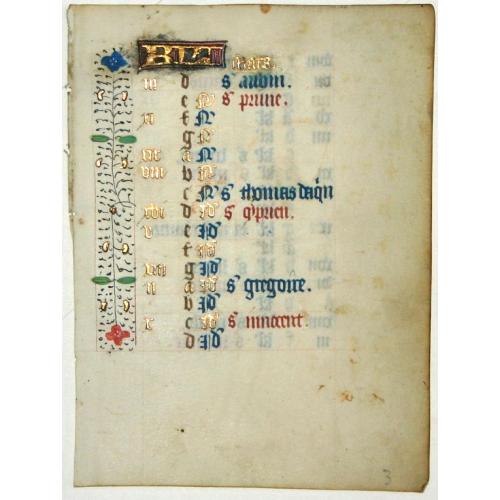 KL mars.
iii d s aubin.
e N s prime.
xi f N
g N
xix a N
viii b N
c N s thomas daqn
xvi d Id s cprien.
v e Id
f Id
xiii g Id
ii a Id s gregoire.
b Id
x c Id s innocent.
d Id
3